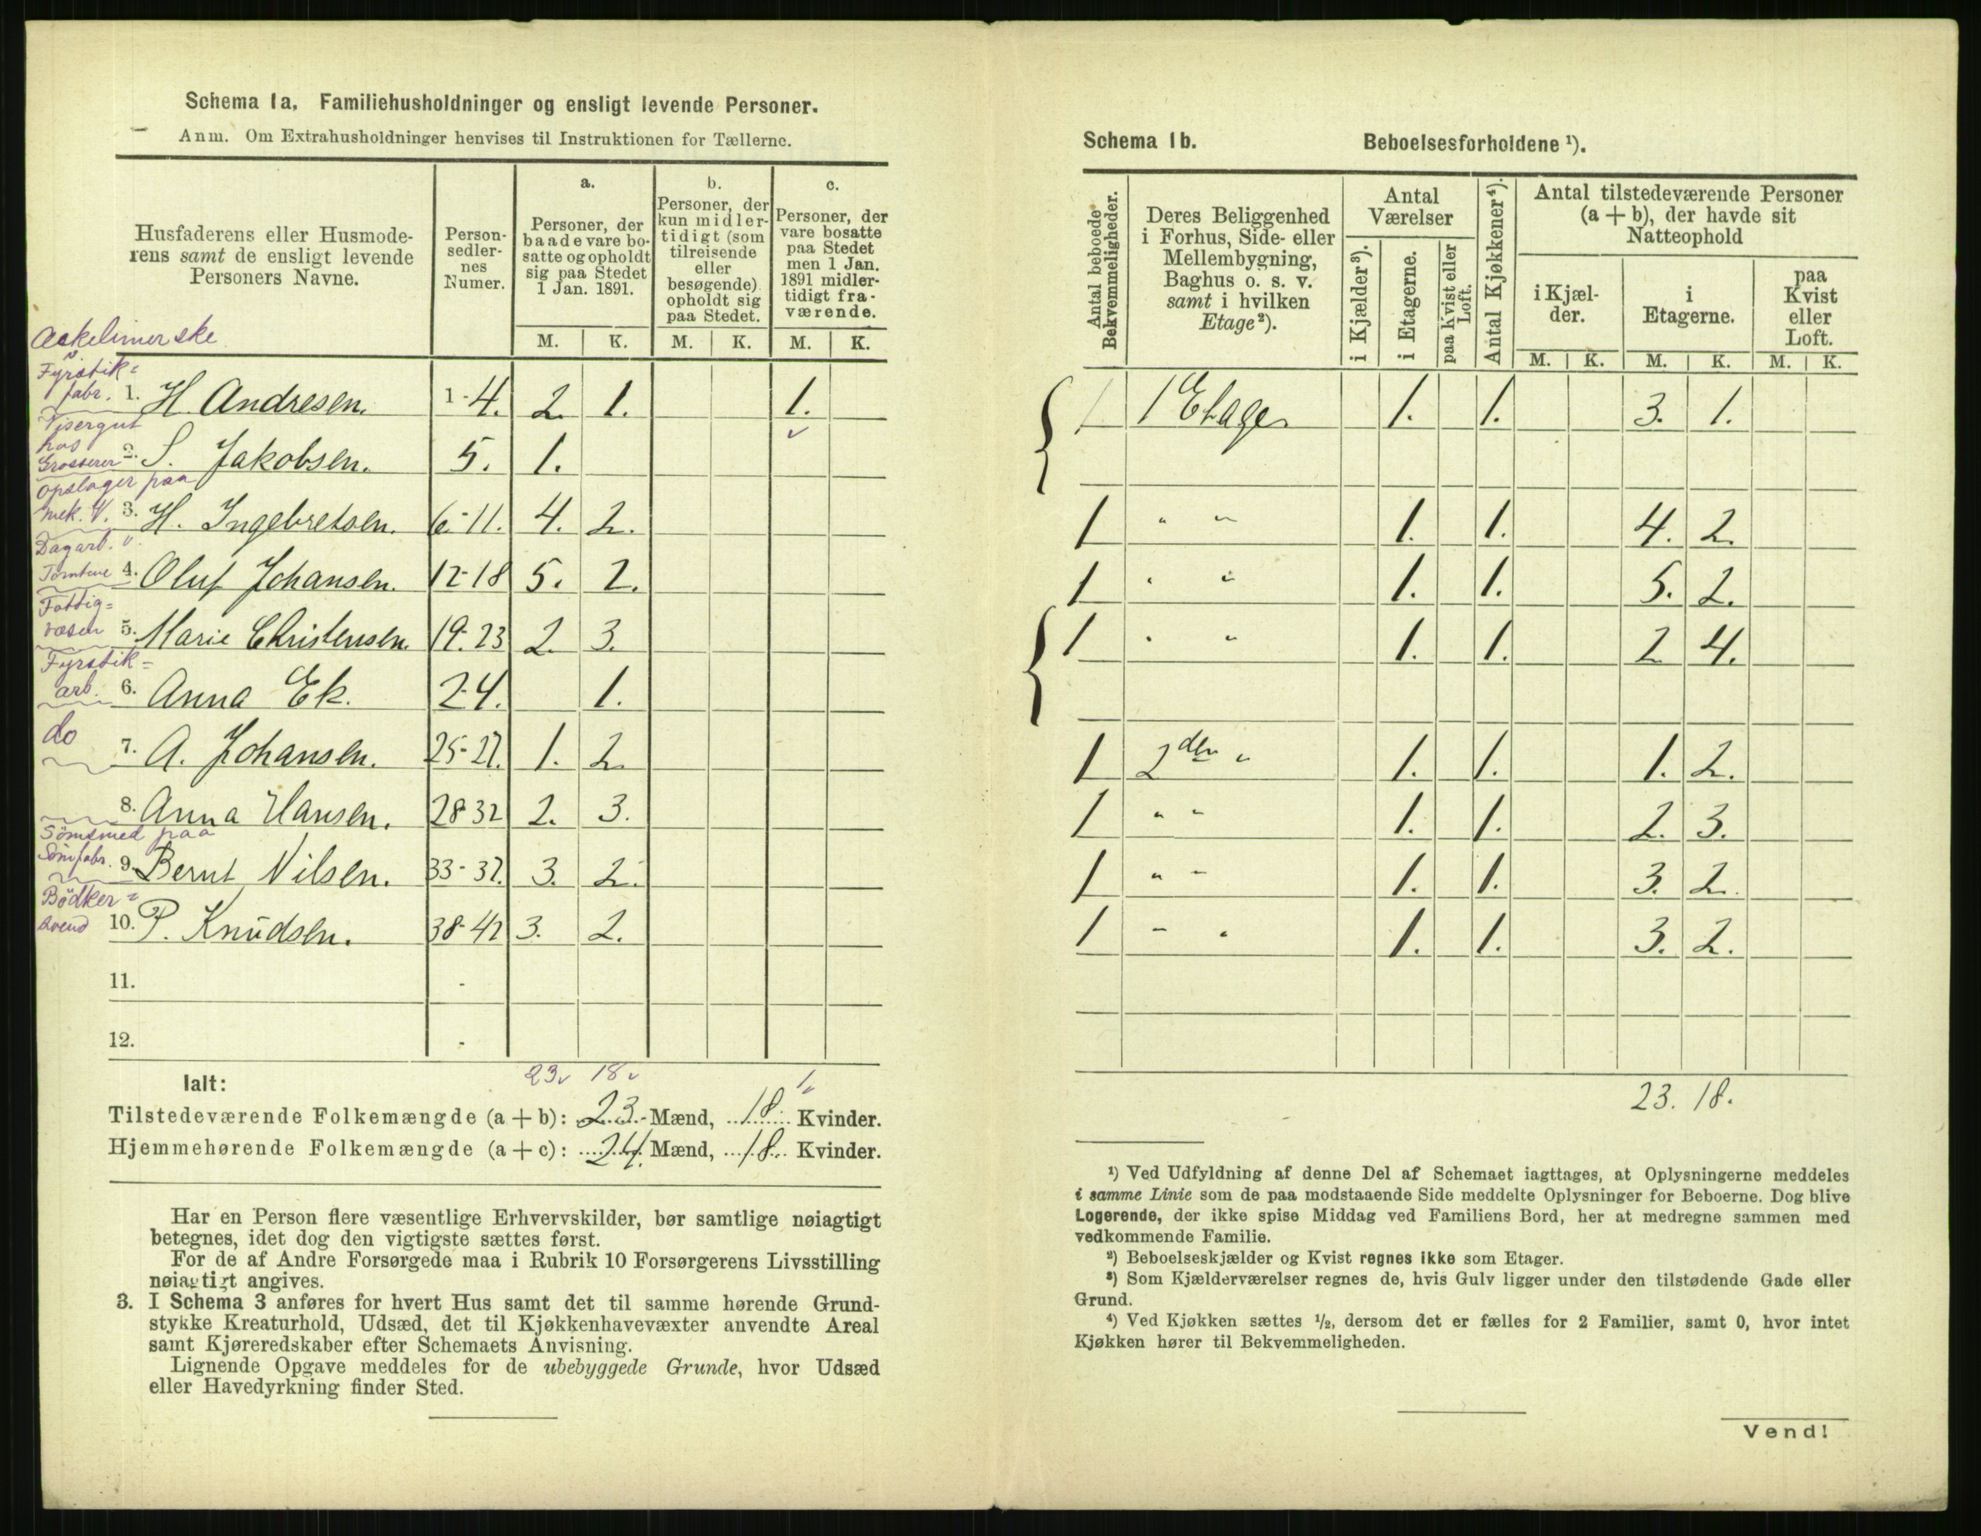 Schema 1a. Familiehusholdninger og ensligt levende Personer.
Anm. Om Extrahusholdninger henvises til Instruktionen for Tællerne.
Husfaderens eller Husmode-
rens samt de ensligt levende
Personers Navne.
Person-
sedler-
nes
Numer.
a.
Personer, der
baade vare bo-
satte og opholdt
sig paa Stedet
1 Jan. 1891.
b.
Personer, der
kun midler-
tidigt (som
tilreisende
eller
besøgende)
opholdt sig
paa Stedet.
c.
Personer, der
vare bosatte
paa Stedet
men 1 Jan.
1891 midler-
tidigt fra-
værende.
M. K. M. K. M. K.
Fyrstik=
fabr. 1. H. Andresen. 1-4. 2 1. 1.
Visergut
hos
Grosserer 2. S. Jakobsen. 5. 1.
Opslager paa
mek. V. 3. H. Ingebretsen. 6-11. 4. 2.
Dagarb. v.
Tomtene 4. Oluf Johansen. 12-18 5. 2.
Fattig=
væsen 5. Marie Christensen. 19-23 2. 3.
Fyrstik=
arb. 6. Anna Ek. 24. 1.
do 7. A. Johansen. 25-27. 1. 2.
8. Anna Hansen. 28-32 2. 3.
Sömsmed paa
Sömfabr. 9. Bernt Nilsen. 33-37. 3. 2.
Bödker=
svend 10. P. Knudsen. 38-42 3. 2.
11. -
12. -
23 18 1
Ialt:
Tilstedeværende Folkemængde (a + b): 23. Mænd, 18. Kvinder.
Hjemmehørende Folkemængde (a + c): 24. Mænd, 18. Kvinder.
Har en Person flere væsentlige Erhvervskilder, bør samtlige nøiagtigt
betegnes, idet dog den vigtigste sættes først.
For de af Andre Forsørgede maa i Rubrik 10 Forsørgerens Livsstilling
nøiagtigt angives.
3. I Schema 3 anføres for hvert Hus samt det til samme hørende Grund-
stykke Kreaturhold, Udsæd, det til Kjøkkenhavevæxter anvendte Areal
samt Kjøreredskaber efter Schemaets Anvisning.
Lignende Opgave meddeles for de ubebyggede Grunde, hvor Udsæd
eller Havedyrkning finder Sted.
Schema 1b. Beboelsesforholdene ¹).
Antal beboede
Bekvemmeligheder.
Deres Beliggenhed
i Forhus, Side- eller
Mellembygning,
Baghus o. s. v.
samt i hvilken
Etage²).
Antal
Værelser
i Kjælder³).
i Etagerne.
paa Kvist eller
Loft.
Antal Kjøkkener⁴).
Antal tilstedeværende Personer
(a + b), der havde sit
Natteophold
i Kjæl-
der.
i
Etagerne.
paa
Kvist
eller
Loft.
M. K. M. K. M. K.
1 1 Etage 1. 1. 3. 1.
1 " " 1. 1. 4. 2.
1 " " 1. 1. 5. 2.
1 " " 1. 1. 2 4.
1 2den " 1. 1. 1. 2.
1 " " 1. 1. 2. 3.
1 " " 1. 1. 3. 2.
1 " " 1. 1. 3. 2.
23. 18.
¹) Ved Udfyldning af denne Del af Schemaet iagttages, at Oplysningerne meddeles
i samme Linie som de paa modstaaende Side meddelte Oplysninger for Beboerne. Dog blive
Logerende, der ikke spise Middag ved Familiens Bord, her at medregne sammen med
vedkommende Familie.
²) Beboelseskjælder og Kvist regnes ikke som Etager.
³) Som Kjælderværelser regnes de, hvis Gulv ligger under den tilstødende Gade eller
Grund.
⁴) Ved Kjøkken sættes ½, dersom det er fælles for 2 Familier, samt 0, hvor intet
Kjøkken hører til Bekvemmeligheden.
Vend!